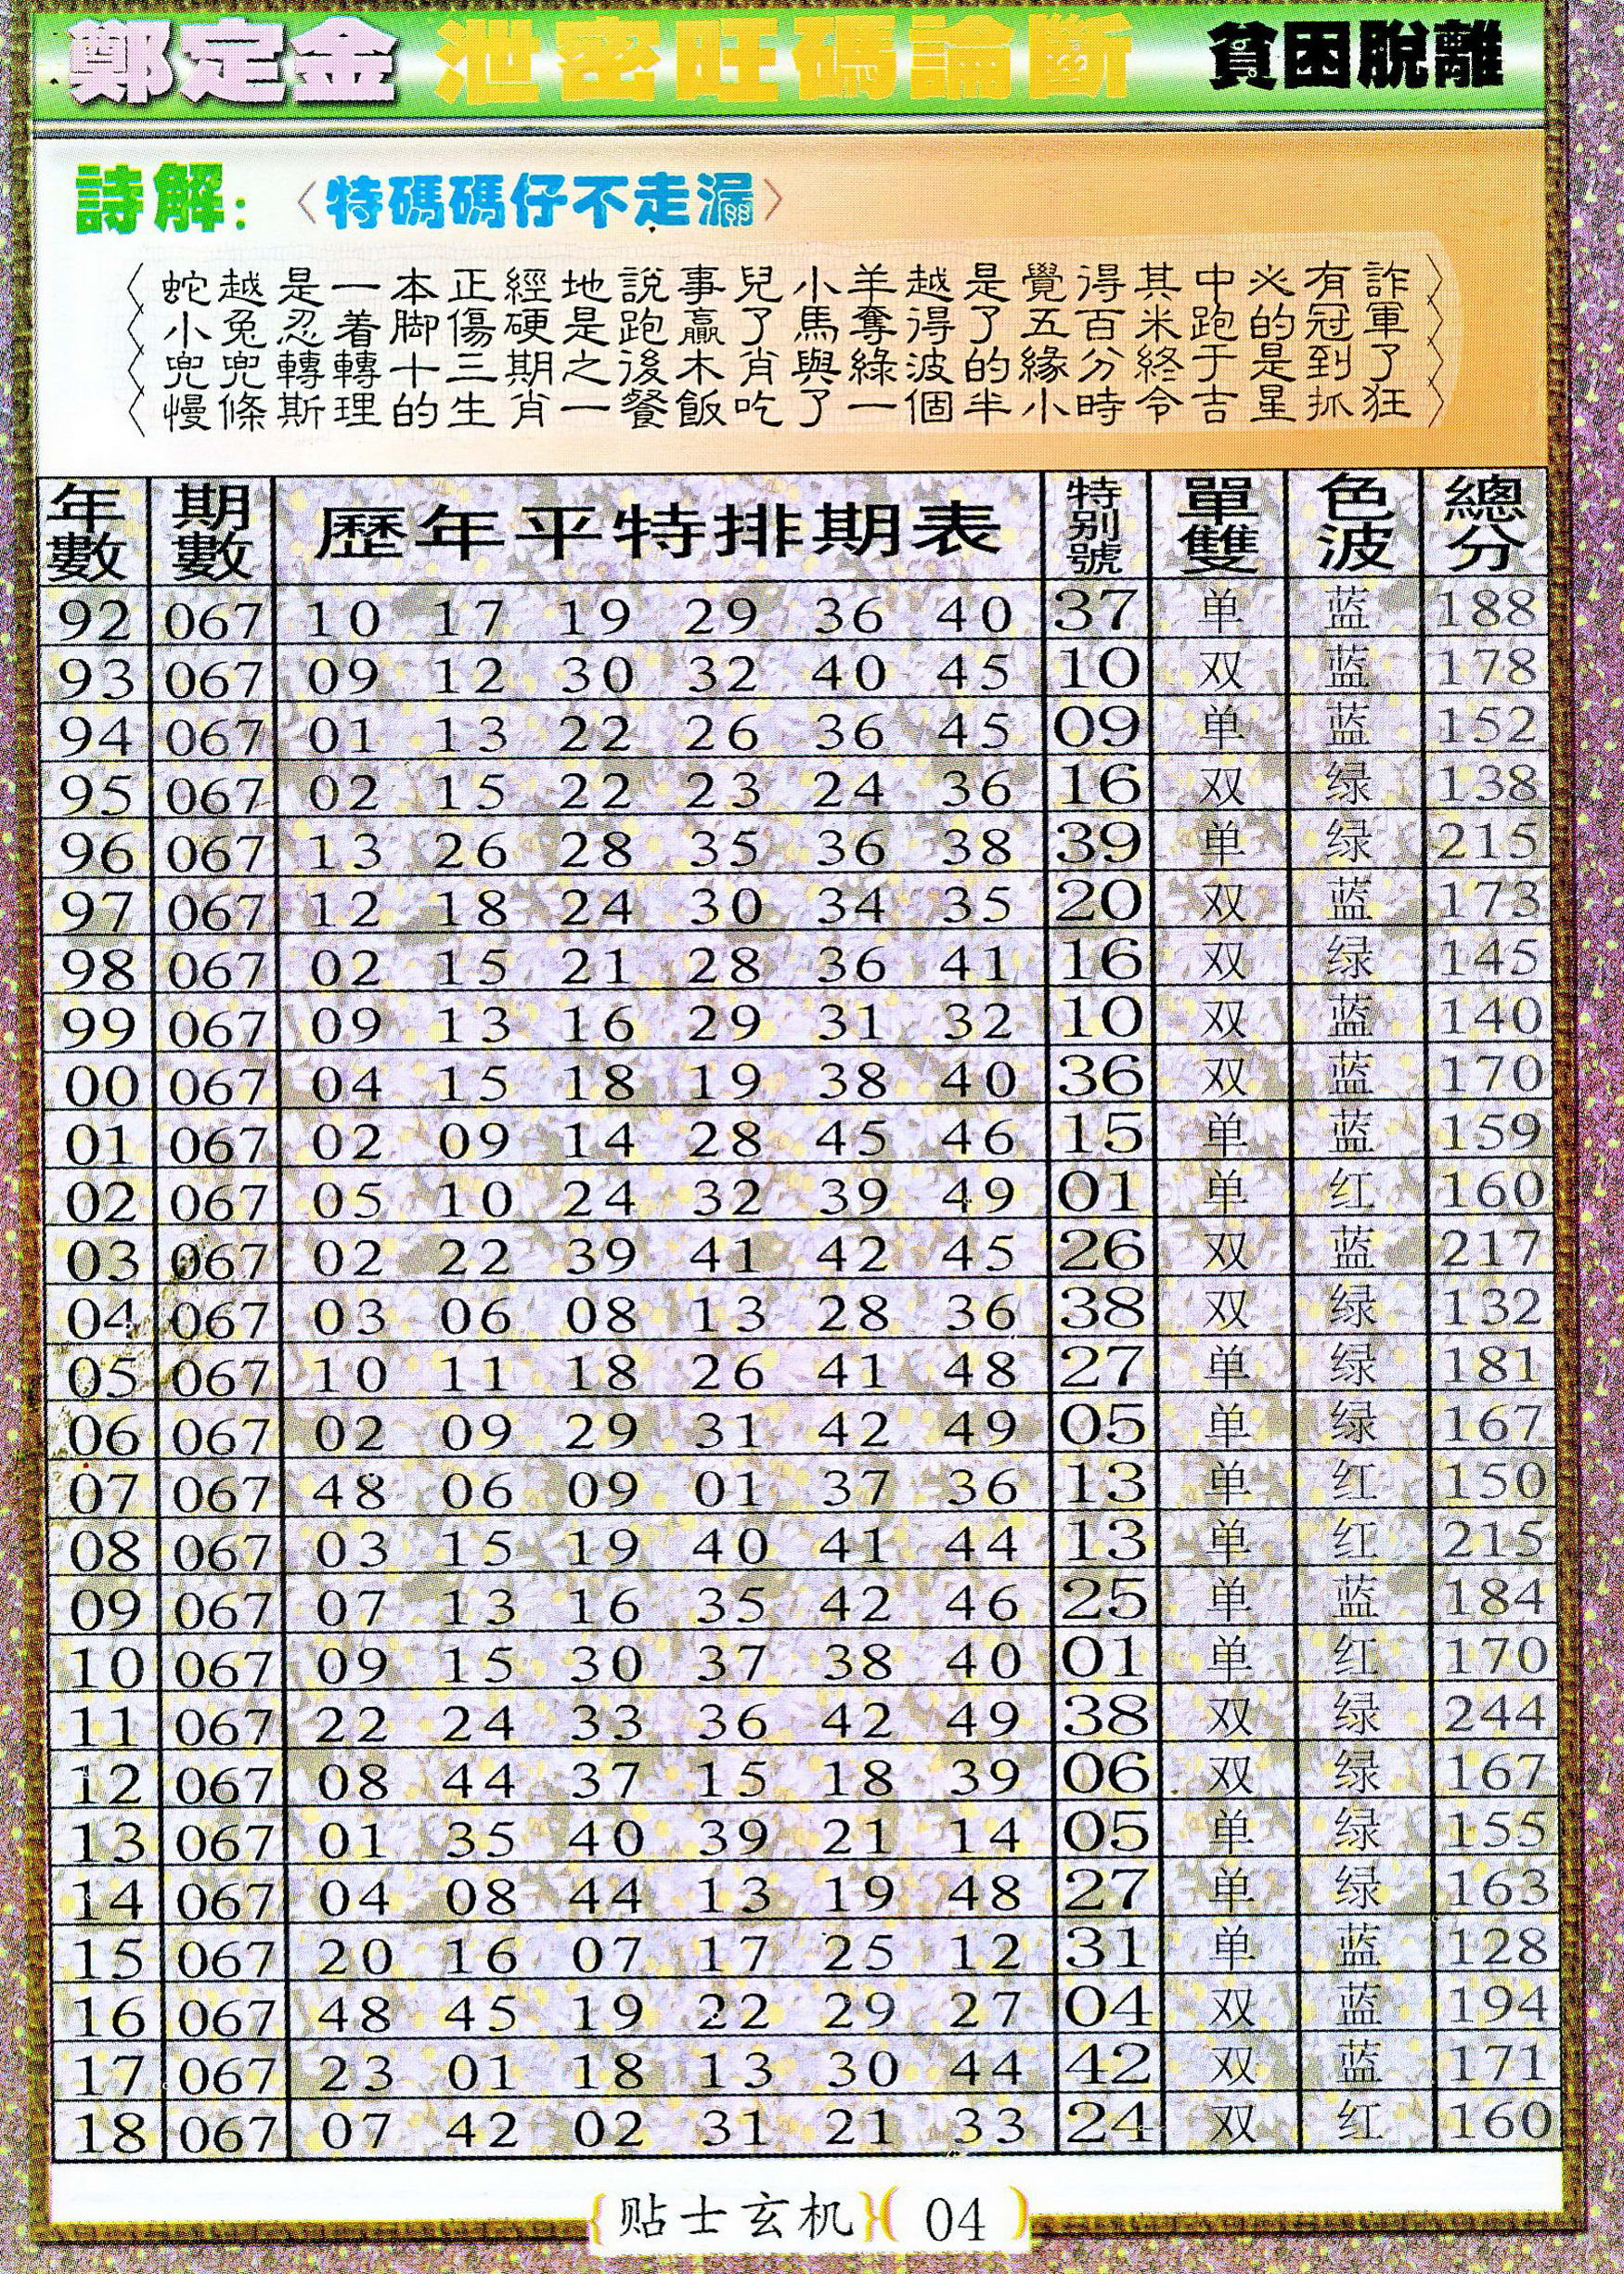 鄭定金 泄密旺碼論斷 貧困脫離
詩解：〈特碼碼仔不走漏〉
蛇越是一本正經地說事兒小羊越是覺得其中必有詐
小兔忍着脚傷硬是跑贏了馬奪得了五百米跑的冠軍
兜兜轉轉十三期之後木肖與綠波的緣分終于是到了
慢條斯理的生肖一餐飯吃了一個半小時令吉星抓狂
年數 期數 歷年平特排期表 特别號 單雙 色波 總分
92 067 10 17 19 29 36 40 37 单 蓝 188
93 067 09 12 30 32 40 45 10 双 蓝 178
94 067 01 13 22 26 36 45 09 单 蓝 152
95 067 02 15 22 23 24 36 16 双 绿 138
96 067 13 26 28 35 36 38 39 单 绿 215
97 067 12 18 24 30 34 35 20 双 蓝 173
98 067 02 15 21 28 36 41 16 双 绿 145
99 067 09 13 16 29 31 32 10 双 蓝 140
00 067 04 15 18 19 38 40 36 双 蓝 170
01 067 02 09 14 28 45 46 15 单 蓝 159
02 067 05 10 24 32 39 49 01 单 红 160
03 067 02 22 39 41 42 45 26 双 蓝 217
04 067 03 06 08 13 28 36 38 双 绿 132
05 067 10 11 18 26 41 48 27 单 绿 181
06 067 02 09 29 31 42 49 05 单 绿 167
07 067 48 06 09 01 37 36 13 单 红 150
08 067 03 15 19 40 41 44 13 单 红 215
09 067 07 13 16 35 42 46 25 单 蓝 184
10 067 09 15 30 37 38 40 01 单 红 170
11 067 22 24 33 36 42 49 38 双 绿 244
12 067 08 44 37 15 18 39 06 双 绿 167
13 067 01 35 40 39 21 14 05 单 绿 155
14 067 04 08 44 13 19 48 27 单 绿 163
15 067 20 16 07 17 25 12 31 单 蓝 128
16 067 48 45 19 22 29 27 04 双 蓝 194
17 067 23 01 18 13 30 44 42 双 蓝 171
18 067 07 42 02 31 21 33 24 双 红 160
{贴士玄机}( 04 )